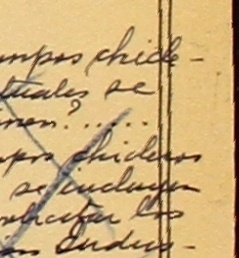 mpos chicle-
tuales se
nen?.....
mpos chicleros
se incluyen
solicitar los
Indus-